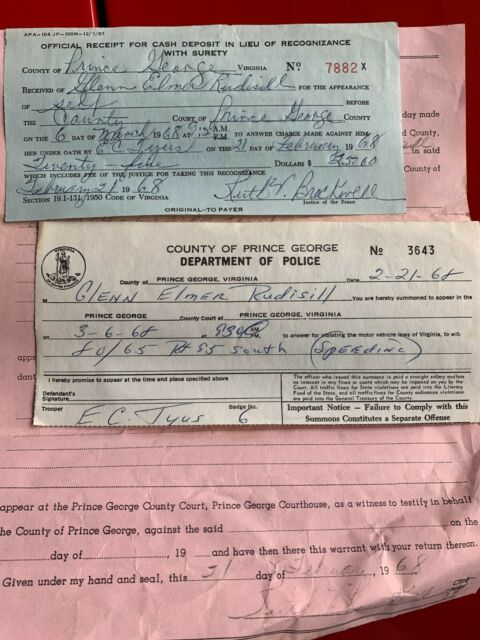 APA-104 JP-100M-12/1/67
OFFICIAL RECEIPT FOR CASH DEPOSIT IN LIEU OF RECOGNIZANCE
WITH SURETY
COUNTY OF Prince George VIRGINIA No 7882 X
RECEIVED OF Glenn Elmer Rudisill FOR THE APPEARANCE
OF self BEFORE
THE County COURT OF Prince George COUNTY
ON THE 6 DAY OF March 1968 AT 9:30 A.M. P.M. TO ANSWER CHARGE MADE AGAINST HIM
HER UNDER OATH BY E C Tyus ON THE 21 DAY OF February 1968
Twenty-five DOLLARS $ 25.00
WHICH INCLUDES FEE OF JUSTICE FOR TAKING THIS RECOGNIZANCE
February 21 1968 Ruth T. Brockwell
SECTION 19.1-131, 1950 CODE OF VIRGINIA Justice of the Peace
ORIGINAL-TO PAYER
day made
d County,
in said
County of
VIRGINIA
COUNTY OF PRINCE GEORGE No 3643
DEPARTMENT OF POLICE
County of PRINCE GEORGE, VIRGINIA Date 2-21-68
M GLENN Elmer Rudisill You are hereby summoned to appear in the
PRINCE GEORGE County Court at PRINCE GEORGE, VIRGINIA
on 3-6-68 at 930 AM PM. to answer for violating the motor vehicle laws of Virginia, to wit:
80/65 Rt 35 South (SPEEDING)
I hereby promise to appear at the time and place specified above
Defendant's
Signature
The officer who issued this summons is paid a straight salary and has
no interest in any fines or costs which may be imposed on you by the
Court. All traffic fines for State violations are paid into the Literary
Fund of the State, and all traffic fines for County ordinance violations
are paid into the General Treasury of the County.
Trooper E.C. Tyus Badge No. 6
Important Notice — Failure to Comply with this
Summons Constitutes a Separate Offense
appe
dant
appear at the Prince George County Court, Prince George Courthouse, as a witness to testify in behalf
the County of Prince George, against the said on the
day of , 19 and have then there this warrant with your return thereon.
Given under my hand and seal, this 21 day of February, 1968